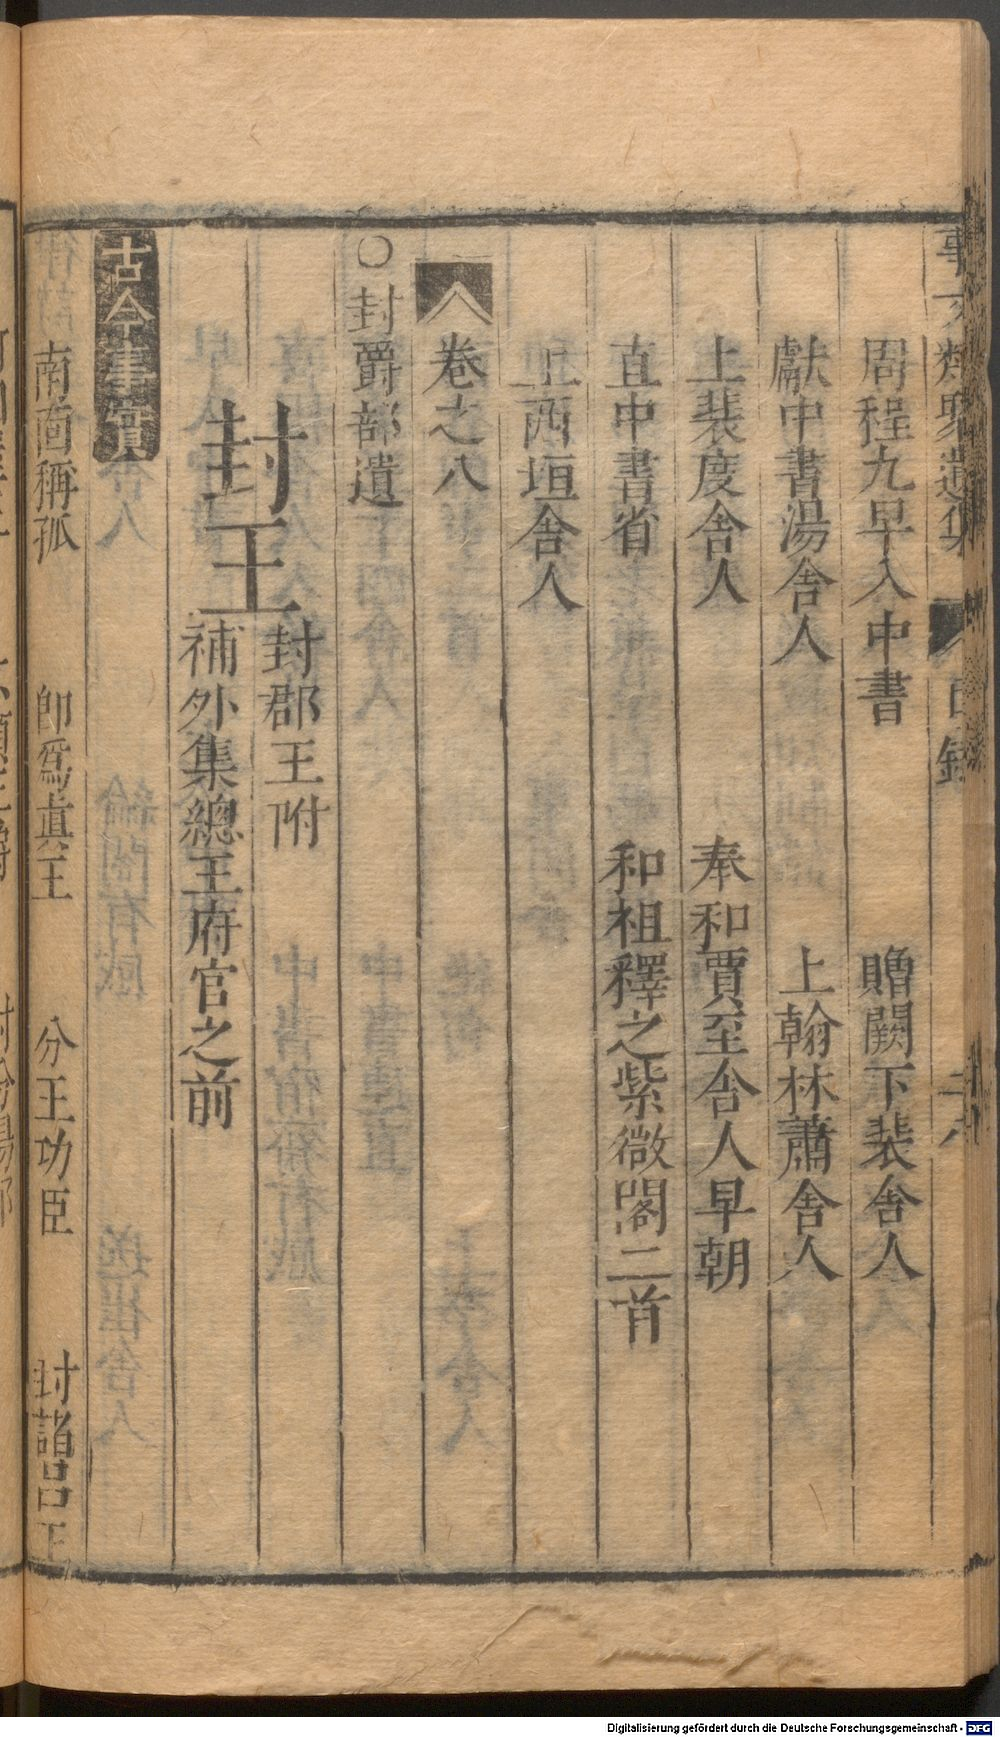 事文類聚遺集 目錄 二六
周程九早入中書 贈闕下裴舍人
獻中書湯舍人 上翰林蕭舍人
上裴度舍人 奉和賈至舍人早朝
直中書省 和祖釋之紫微閣二首
上西垣舍人
卷之八
○封爵部遺
封王 封郡王附
補外集總王府官之前
古今事實
南面稱孤 卽爲眞王 分王功臣 封諸呂王
Digitalisierung gefördert durch die Deutsche Forschungsgemeinschaft - DFG